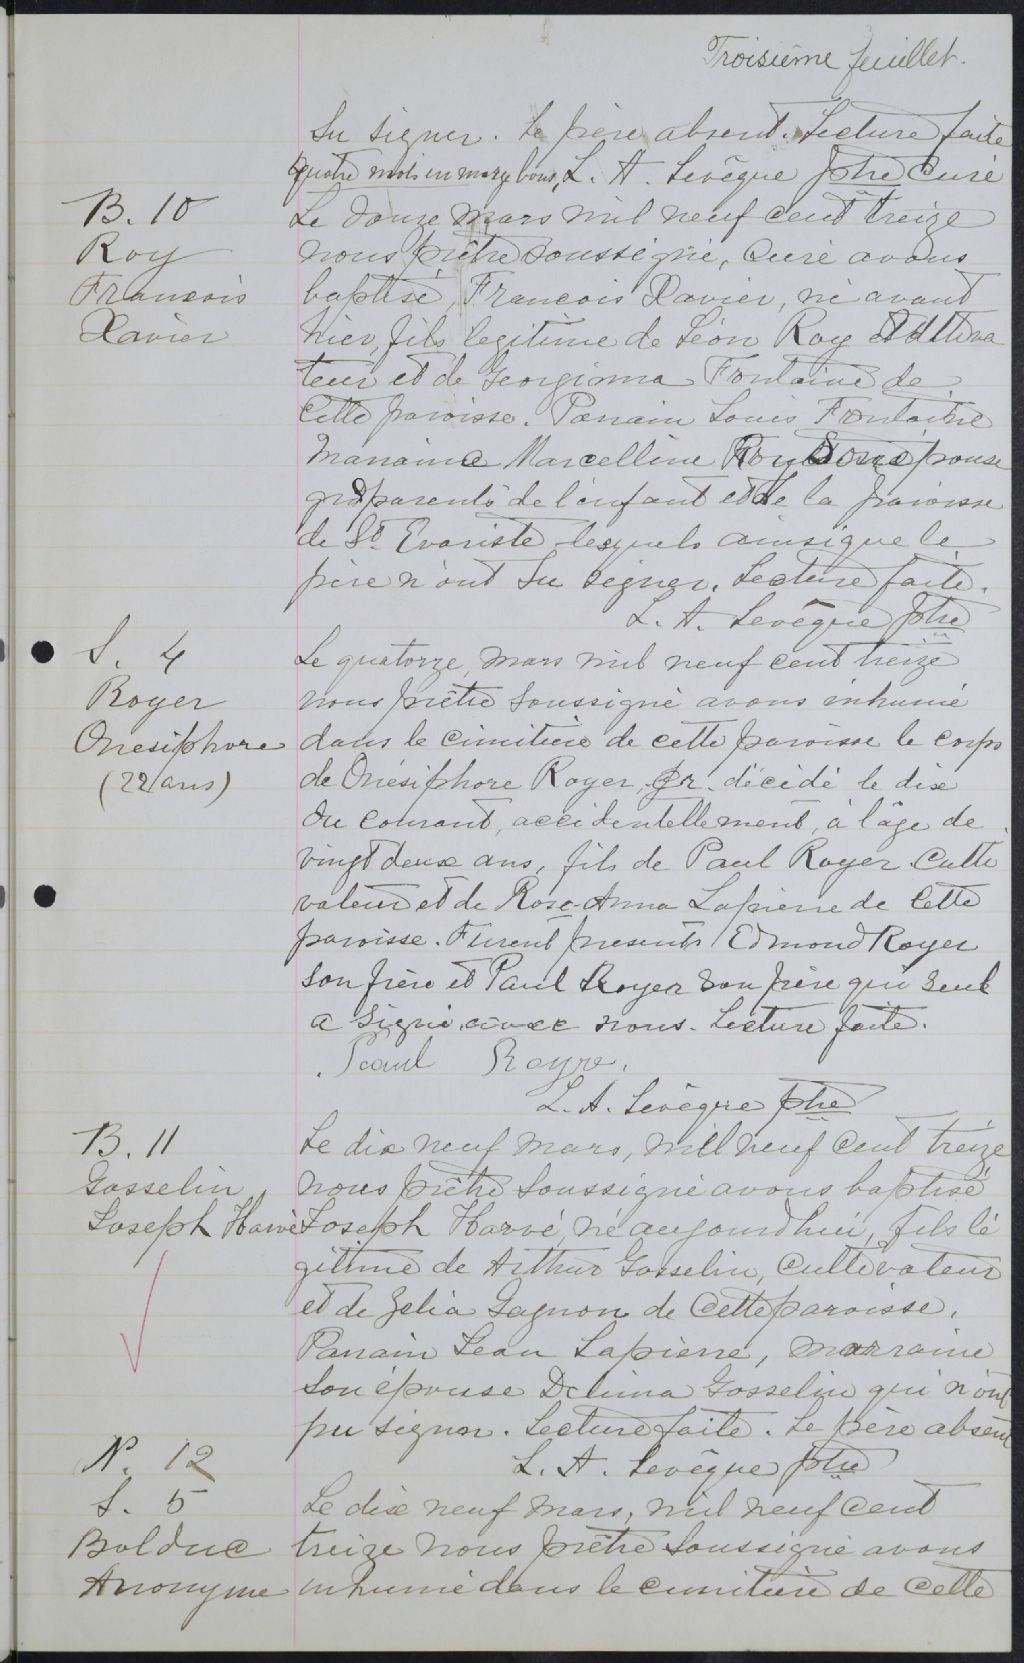 Troisième feuillet.
su signer. Le père absent. Lecture faite
quatre mots en marge bons, L. A. Levêque ptre Curé
B. 10
Roy
Francois
Xavier
Le douze mars mil neuf cent treize
nous prêtre soussigné, curé avons
baptisé, Francois Xavier, né avant
hier, fils legitime de Léon Roy cultiva
teur et de Georginna Fontaine de
cette paroisse. Parrain Louis Fontaine
Marraine Marcelline Roy son épouse
grds parents de l'enfant et de la paroisse
de St. Evariste lesquels ainsi que le
père n'ont su signer. Lecture faite.
L. A. Levêque ptre
S. 4
Royer
Onesiphore
(22 ans)
Le quatorze, mars mil neuf cent treize
nous prêtre soussigné avons inhumé
dans le cimitière de cette paroisse le corps
de Onésiphore Royer, décédé le dix
du courant, accidentellement, à l'âge de
vingt deux ans, fils de Paul Royer Culti
vateur et de Rose-Anna Lapierre de cette
paroisse. Furent présents Edmond Royer
son frère et Paul Royer son père qui seul
a signé avec nous. Lecture faite.
Paul Royre.
L. A. Levêque ptre
B. 11
Gosselin
Joseph Harvé
Le dix neuf mars, mil neuf cent treize
nous prêtre soussigné avons baptisé
Joseph Harvé, né aujourdhui, fils lé
gitime de Arthur Gosselin, cultivateur
et de Zelia Gagnon de cette paroisse.
Parrain Jean Lapierre, marraine
son épouse Delima Gosselin qui n'ont
pu signer. Lecture faite. Le père absent
L. A. Levêque ptre
N. 12
S. 5
Bolduc
Anonyme
Le dix neuf mars, mil neuf cent
treize nous prêtre soussigné avons
inhumé dans le cimitière de cette